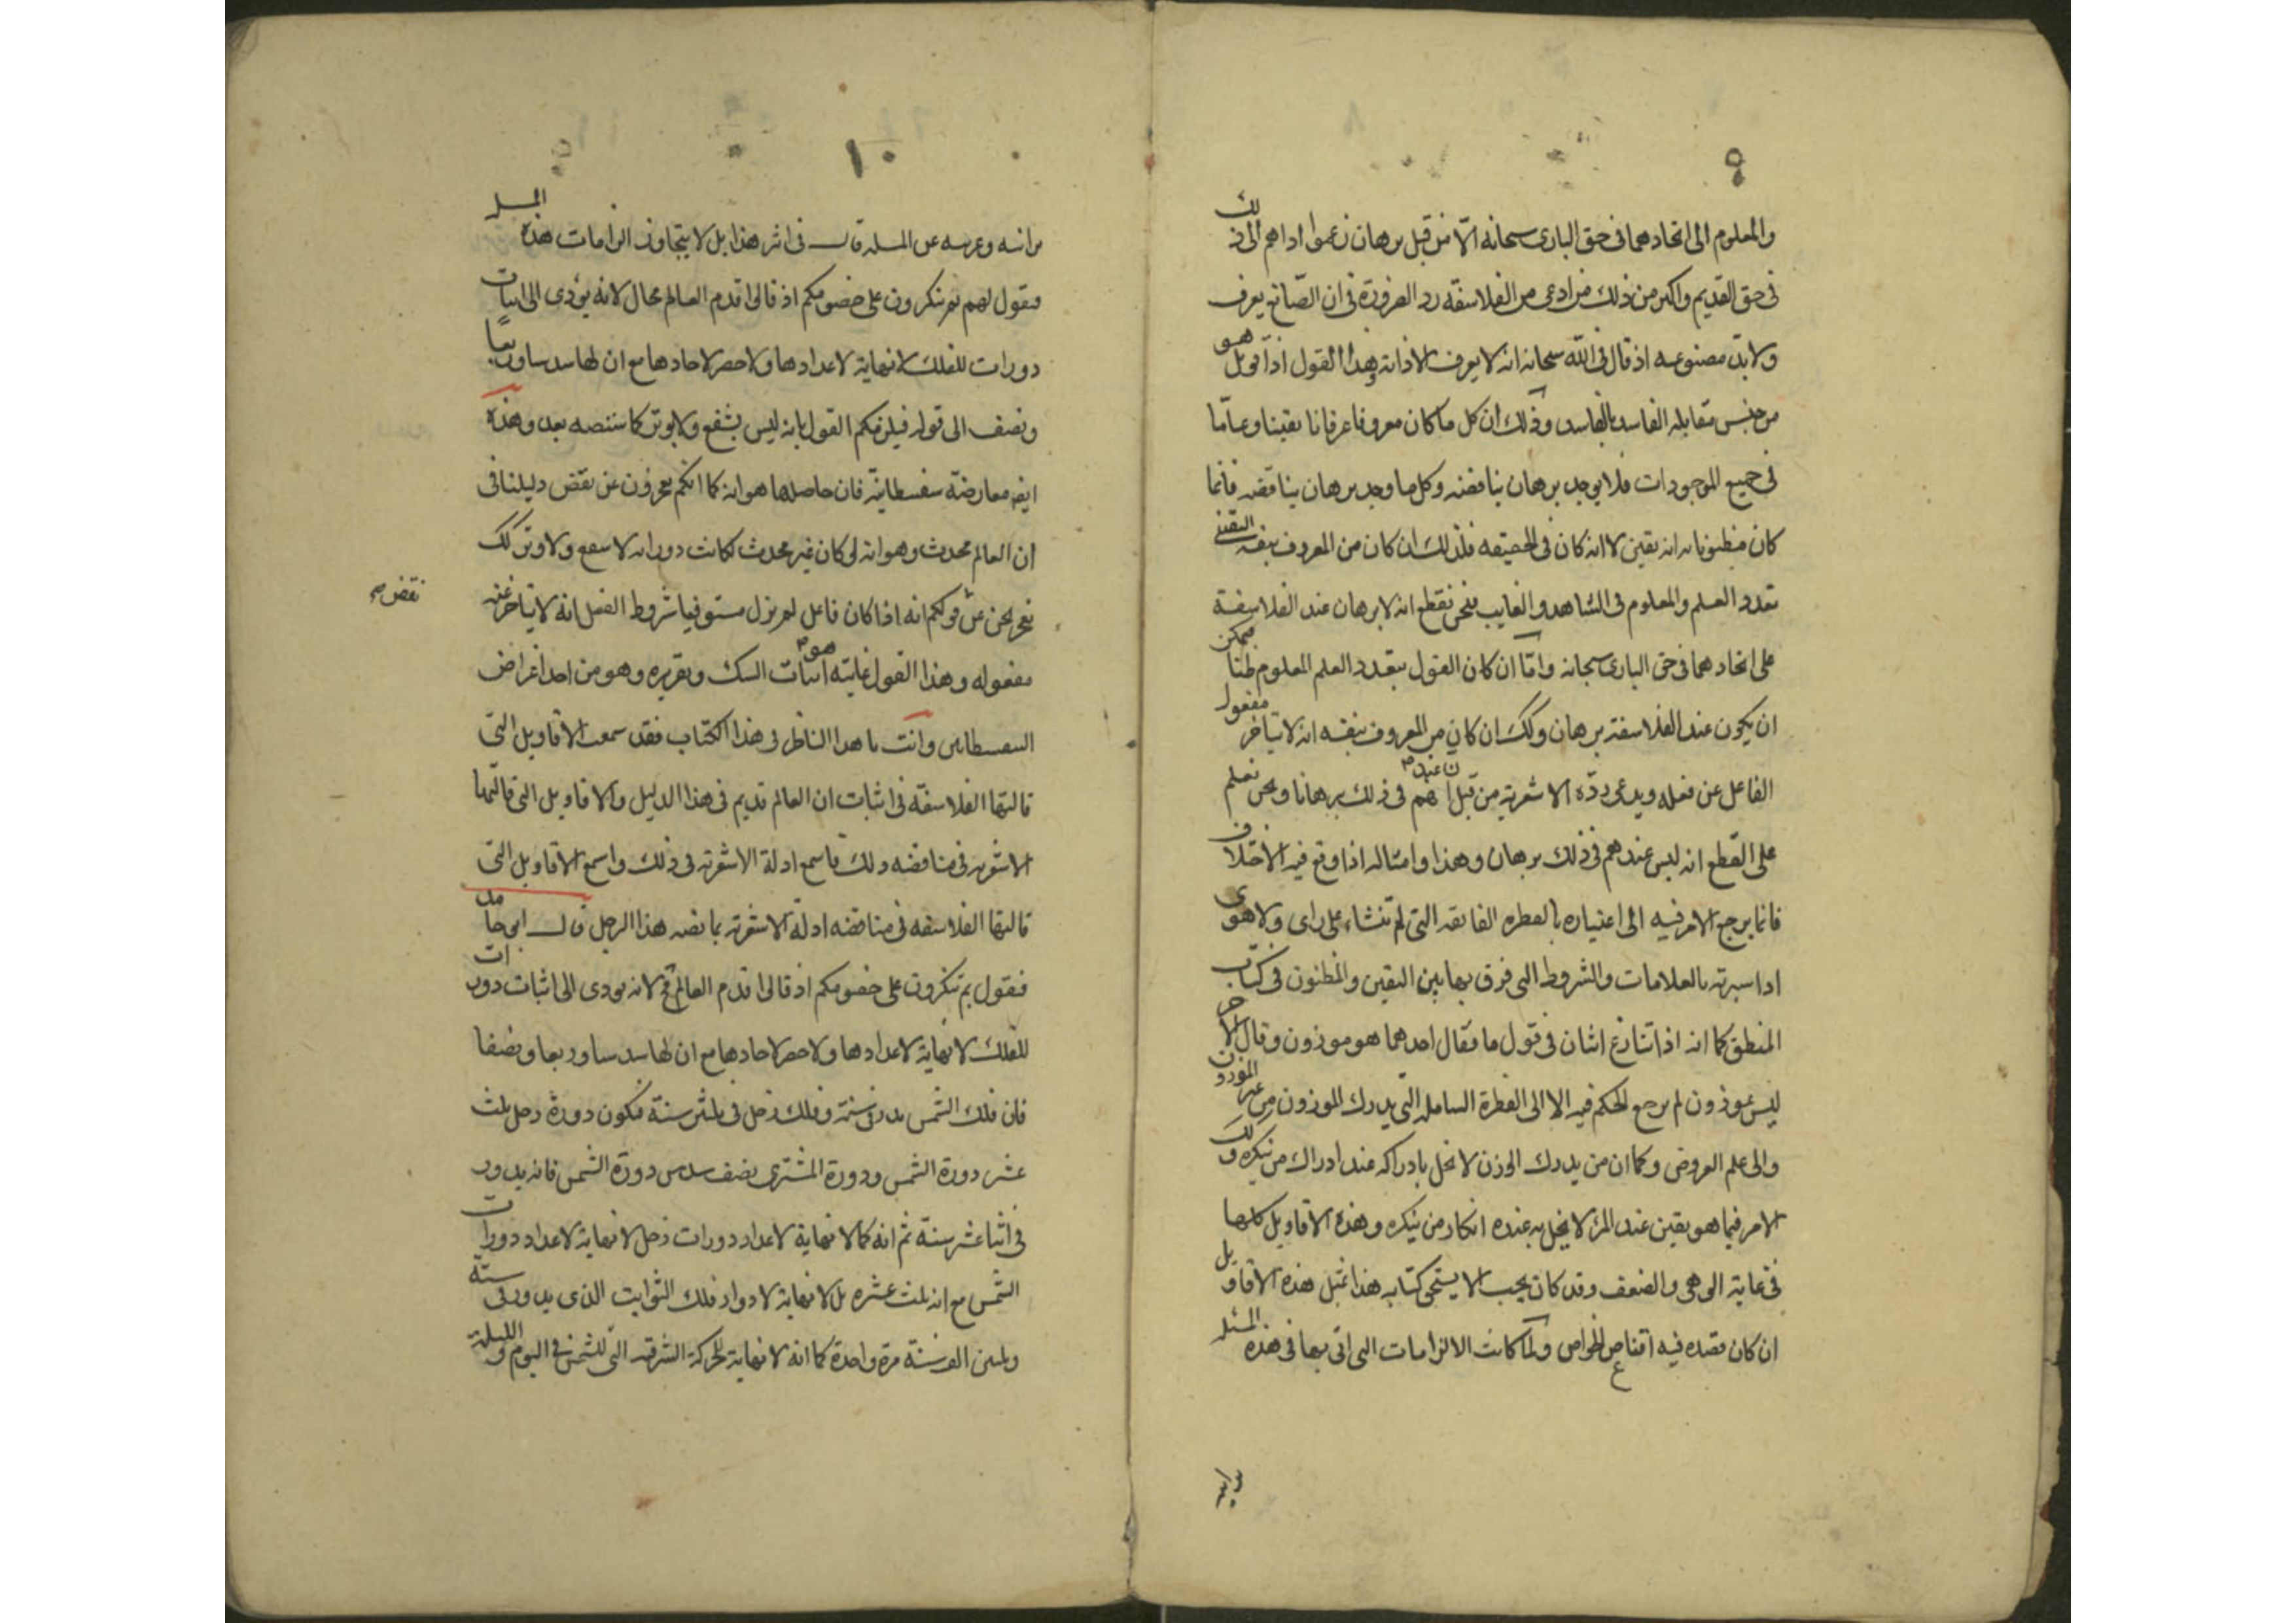 ٩
والمعلوم الى اتحادهما فى حق البارى سبحانه الا من قبل برهان زعموا اداهم الى ذلك
فى حق القديم واكثر من ذلك من ادعى من الفلاسفه رد الضرورة فى ان الصانع يعرف
ولابد مصنوعه اذ قال فى الله سبحانه انه لا يعرف الا ذاته وهذا القول اذا قوبل هو
من جنس مقابله الفاسد بالفاسد وذلك ان كل ما كان معروفا عرفانا يقينا وعاما
فى جميع الموجودات فلا يوجد برهان يناقضه وكل ما وجد برهان يناقضه فانما
كان مظنونا به انه يقين لا انه كان فى الحقيقه فلذلك ان كان من المعروف بنفسه اليقينى
تعدد العلم والمعلوم فى الشاهد والغايب فنحن نقطع انه لا برهان عند الفلاسفة
على اتحادهما فى حق البارى سبحانه واما ان كان القول بتعدد العلم المعلوم ظنا فممكن
ان يكون عند الفلاسفة برهان وكك ان كان من المعروف بنفسه انه لا يتاخر مفعول
الفاعل عن فعله ويدعى رده الاشعرية من قبل ان عندهم فى ذلك برهانا ونحن نعلم
على القطع انه ليس عندهم فى ذلك برهان وهذا وامثاله اذا وقع فيه الاختلاف
فانما يرجع الامر فيه الى اعتباره بالفطره الفائقه التى لم تنشاء على راى ولا هوى
اذا سبرته بالعلامات والشروط التى فرق بها بين اليقين والمظنون فى كتاب
المنطق كما انه اذا تنازع اثنان فى قول ما فقال احدهما هو موزون وقال الاخر
ليس بموزون لم يرجع الحكم فيه الا الى الفطرة السالمه التى يدرك الموزون من غير الموزون
والى علم العروض وكما ان من يدرك الوزن لا يخل بادراكه عند ادراك من ينكره وكك
الامر فيما هو يقين عند المرء لا يخل به عنده انكار من ينكره وهذه الاقاويل كلها
فى غاية الوهى والضعف وقد كان يجب الا يشحن كتابه هذا بمثل هذه الاقاويل
ان كان قصده فيه اقناع الخواص ولما كانت الالزامات التى اتى بها فى هذه المسئله
برانيه
١٠
برانيه وغريبه عن المسله قال فى اثر هذا بل لا يتجاوز الزامات هذه المسله
فنقول لهم بم تنكرون على خصومكم اذ قالوا قدم العالم محال لانه يؤدى الى اثبات
دورات للفلك لا نهاية لاعدادها ولا حصر لاحادها مع ان لها سدسا وربعا
ونصف الى قوله فيلزمكم القول بانه ليس بشفع ولا بوتر كما سننصه بعد وهذه
ايضا معارضة سفسطاينة فان حاصلها هو انه كما انكم تعجزون عن نقض دليلنا فى
ان العالم محدث وهو انه لو كان غير محدث لكانت دوراته لا شفع ولا وتر كك
نعجز نحن عن قولكم انه اذا كان فاعل لم يزل مستوفيا شروط الفعل انه لا يتاخر عنه
نقض صح
مفعوله وهذا القول غايته هو اثبات الشك وتقريره وهو من احد اغراض
السفسطايين وانت يا هذا الناظر فى هذا الكتاب فقد سمعت الاقاويل التى
قالتها الفلاسفة فى اثبات ان العالم قديم فى هذا الدليل والاقاويل التى قالتها
الاشعريه فى مناقضه ذلك فاسمع ادلة الاشعرية فى ذلك واسمع الاقاويل التى
قالتها الفلاسفه فى مناقضه ادلة الاشعرية بما نصه هذا الرجل قال ابو حامد
فنقول بم تنكرون على خصومكم اذ قالوا قدم العالم مح لانه يودى الى اثبات دورات
للفلك لا نهاية لاعدادها ولا حصر لاحادها مع ان لها سدسا وربعا ونصفا
فان فلك الشمس يدور فى سنة وفلك زحل فى ثلثين سنة فيكون دورة زحل ثلث
عشر دورة الشمس ودورة المشترى نصف سدس دورة الشمس فانه يدور
فى اثنا عشر سنة ثم انه كما لا نهاية لاعداد دورات زحل لا نهاية لاعداد دورات
الشمس مع انه ثلث عشره بل لا نهاية لادوار فلك الثوابت الذى يدور فى ستة
وثلثين الف سنة مرة واحدة كما انه لا نهاية للحركة الشرقيه التى للشمس فى اليوم والليلة